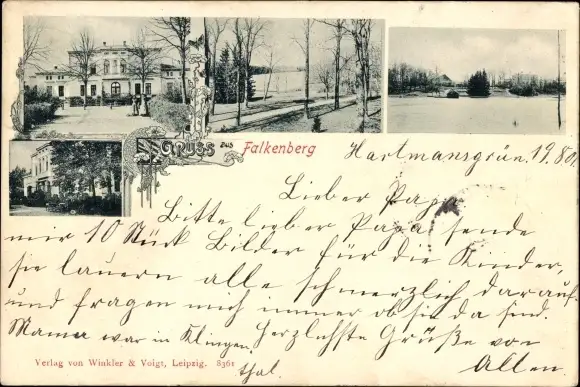 GRUSS aus Falkenberg
Hartmansgrün. 19.8.01.
Lieber Papa
Bitte lieber Papa sende
mir 10 Stück Bilder für die Kinder,
sie lauern alle schmerzlich darauf
und fragen mich immer ob sie da sind.
Mama war in Klingen
thal.
Herzlichste Grüße von
Allen.
Verlag von Winkler & Voigt, Leipzig. 8361